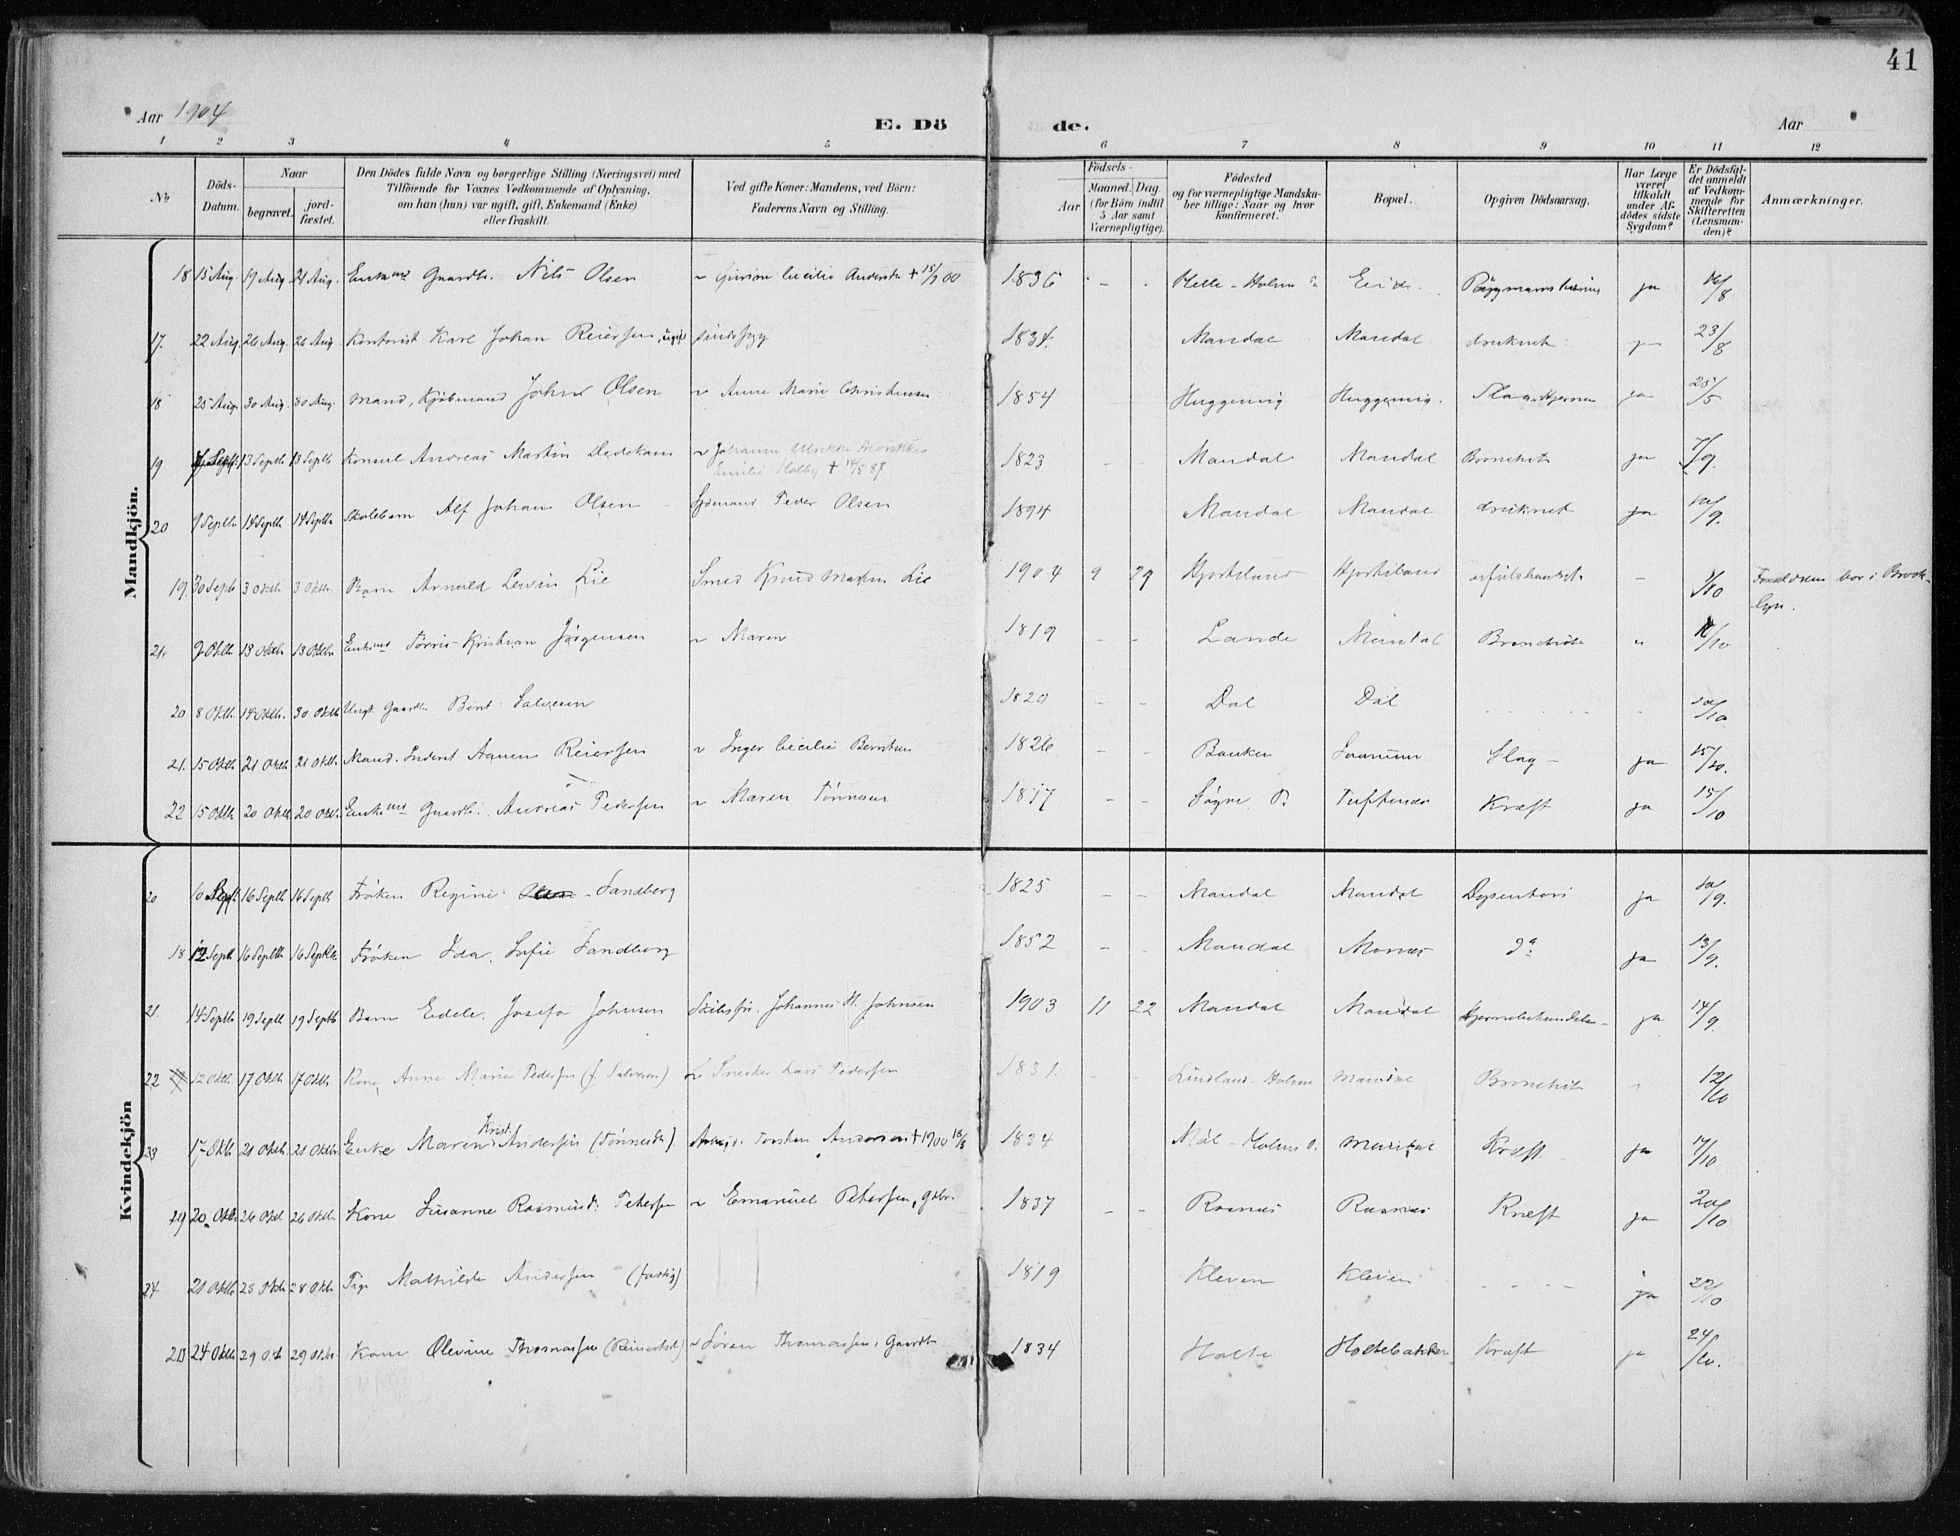 41
Aar 1904
E. Dö de.
Aar
1 2 3 4 5 6 7 8 9 10 11 12
No
Döds-Datum.
Naar
begravet.
jord-fæstet.
Den Dödes fulde Navn og borgerlige Stilling (Næringsvei) med
Tilföiende for Voxnes Vedkommende af Oplysning,
om han (hun) var ugift, gift, Enkemand (Enke)
eller fraskilt.
Ved gifte Koner: Mandens, ved Börn:
Faderens Navn og Stilling.
Födsels-
Aar
Maaned. Dag
(for Börn indtil
5 Aar samt
Værnepligtige).
Födested
og for værnepligtige Mandska-
ber tillige: Naar og hvor
konfirmeret.
Bopæl.
Opgiven Dödsaarsag.
Har Læge
været
tilkaldt
under Af-
dödes sidste
Sygdom?
Er Dödsfal-
det anmeldt
af Vedkom-
mende for
Skifteretten
(Lensman-
den)?
Anmærkninger.
Mandkjön.
18 15 Aug. 19 Aug. 21 Aug. Enkemd Gaardbr. Nils Olsen ~ Cecilie + 15/7 00 1836 - Helle - Holme Eide ja /8
17. 22 Aug. 26 Aug. 26 Aug. Kontorist Karl Johan Reiersen, ugift sindssyg 1834. Mandal Mandal druknet 23/8
18 25 Aug. 30 Aug. 30 Aug. Mand, Kjöbmand Johns Olsen ~ Anne Marie Christensen 1854 Huggenvig Huggenvig. ja 25/
19 13 Septb 13 Septb Konsul Andreas Martin Dedekam ~ Johanne Ulrikke Fredrikke
Emilie + 87 1823 - - Mandal Mandal Bronchit ja 7/9.
20 9 Septb 14 Septb 14 Septb Skolebarn Alf Johan Olsen Sjömand Peder Olsen 1894 Mandal Mandal druknet ja 10/9.
19. 30 Septb 3 Oktb 3 Oktbr. Barn Arnold Lie Smed Knud Martin Lie 1904 9 29 Hjorteland Hjorteland - /10 Forældrene bor i Brook-
lyn.
21. 9 Oktb 13 Oktb 13 Oktbr Enkemd Törris Kristian Jörgensen ~ Maren 1819 - - Lande Mandal Bronchit " /10
20 8 Oktb. 14 Oktb. 30 Oktb Ungk Gaardb. Bent Salvesen 1820 - - Dal Dal . . . . . 10/10
21. 15 Oktb. 21 Oktb. 21 Oktb. Mand. Inderst Aanen Reiersen ~ Inger Cecilie Berntsen 1826 - - Banken Slag - ja 15/10.
22 15 Oktb. 20 Oktb. 20 Oktb. Enkemd Gaardb. Andreas Pedersen ~ Maren Tönnesen 1817 - - Søgne P. Kræft ja 15/10
Kvindekjön
20 10 Sept. 16 Septb 16 Septb Fröken Regine Sandberg 1825 - - Mandal Mandal Dysenteri ja 10/9.
18 12 Septb 16 Septb 16 Septbr Fröken Ida Sofie Sandberg 1852 - - Mandal do ja 13/9.
21. 14 Septb 19 Septb 19 Septb Barn Edele Josefa Johnsen Johannes H. Johnsen 1903 11 22 Mandal Mandal ja 14/9.
22 12 Oktb. 17 Oktb 17 Oktb Kone Anne Marie Pedersen (f. Salvesen) ~ Snecker Lars Pedersen 1831. - - Lindland - Holme Mandal Bronchit " 12/10
23 17 Oktb 21 Oktb 21 Oktbr Enke Maren Krist. Andersen (Tönnesdt.) Arbeid. Torsten Andersen + 1900 18/8 1834 Mål - Holme S. Mandal Kræft. ja 17/10
19 20. Oktb 26 Oktb 26 Oktb. Kone Susanne Rasmusd. Petersen ~ Emanuel Petersen, gdbr. 1837 - - Risnæs Risnæs Kræft ja 20/10
24 21 Oktb 28 Oktb 28 Oktb. Pige Mathilde Andersen (fattig) 1819 Kleven Kleven - - - - ja 22/10
20 24 Oktb 29 Oktb 29 Oktbr Kone Olevine Thomassen (Reinertsdt) ~ Sören Thomassen, Gaardb 1834 Holte Holtebakken Kræft ja 24/10.